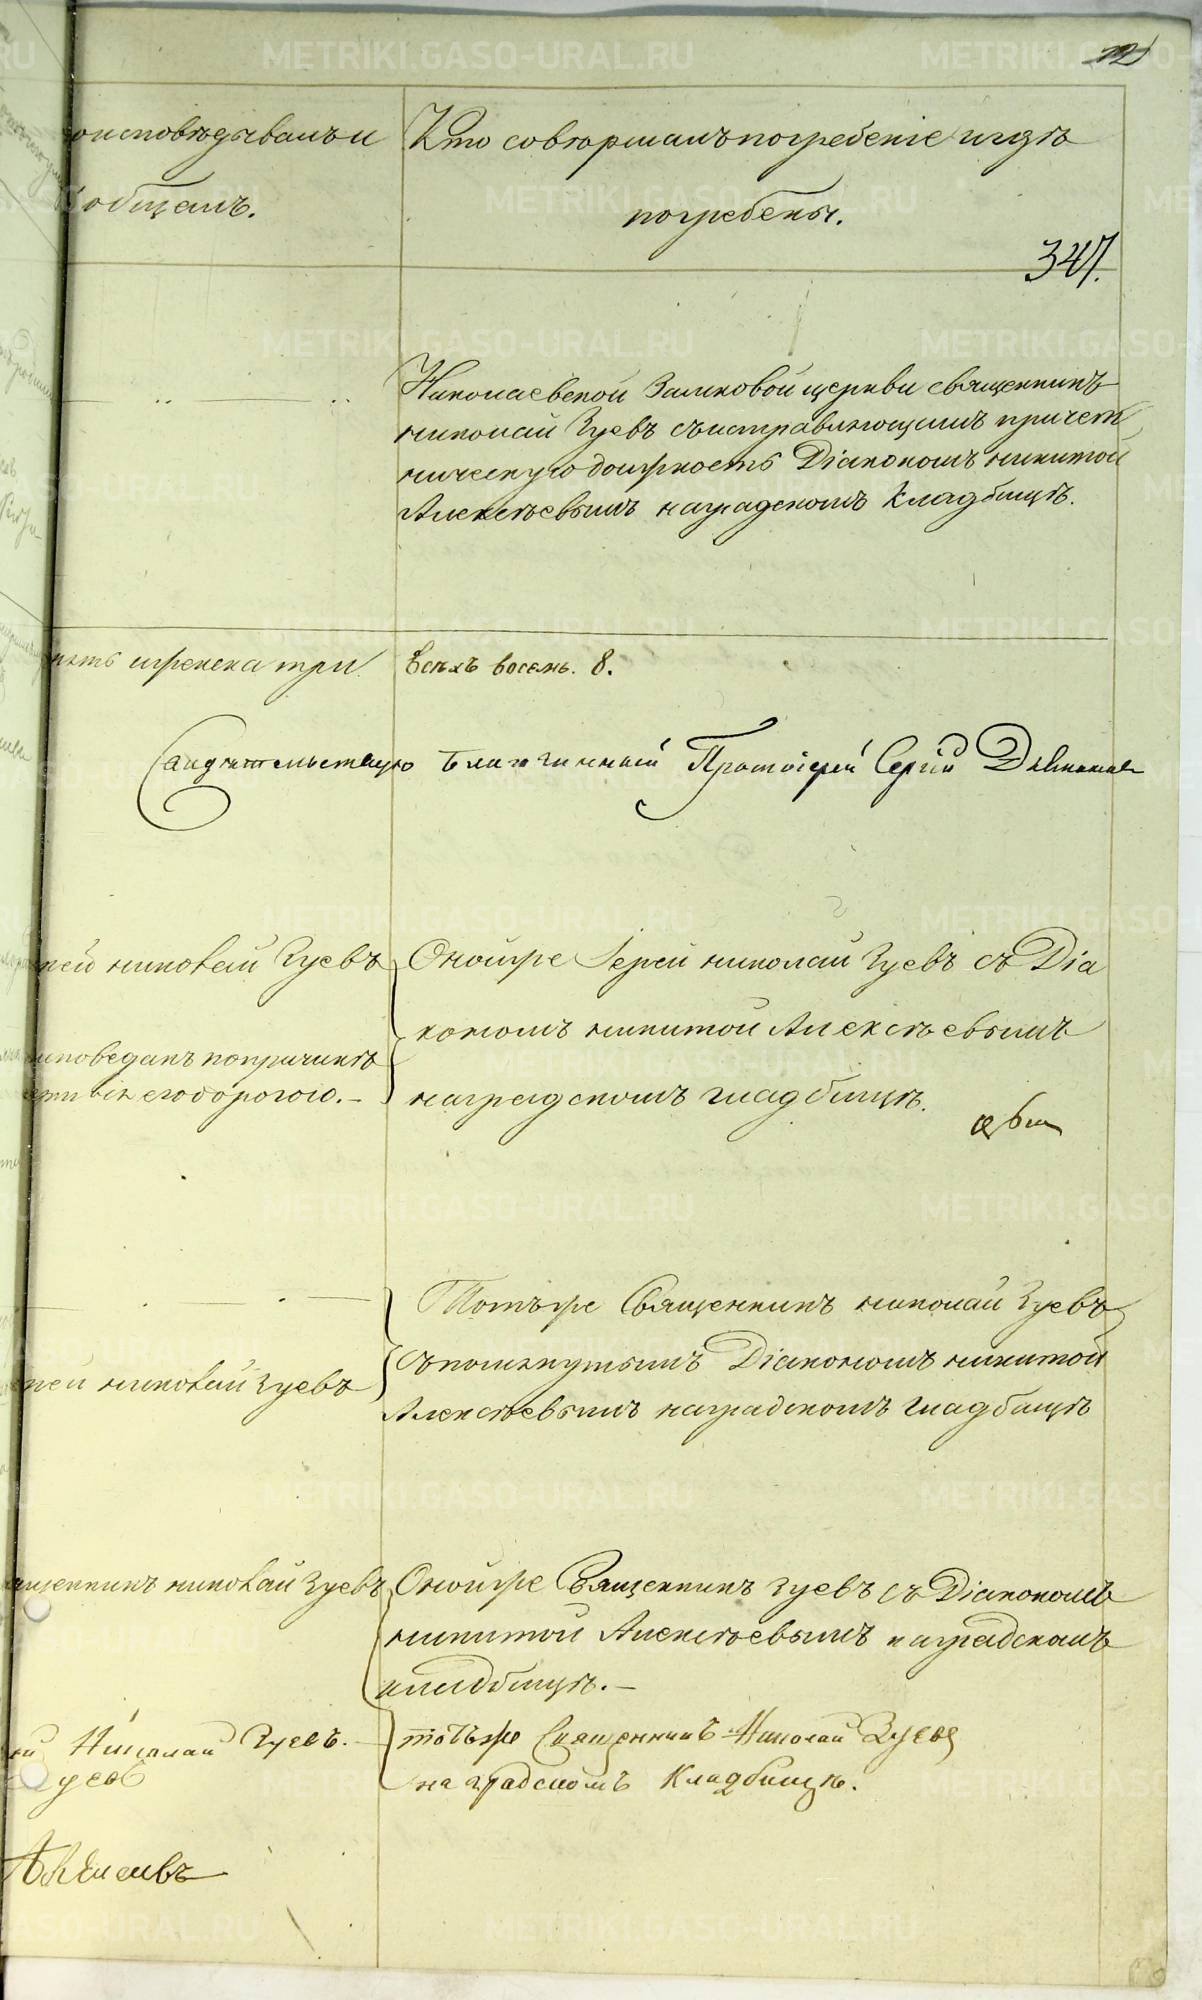 оисповѣдывалъ и
общалъ.
Кто совершалъ погребеніе и гдѣ
погребены.
347.
Николаевской Замковой церкви священникъ
Николай Зуевъ съ исправляющимъ причет
ническую должность Діакономъ Никитой
Алексѣевымъ на градскомъ кладбищѣ.
женска три
всѣхъ восемь. 8.
Свидѣтельствую Благочинный Протоіерей Сергій
рей Николай Зуевъ
исповеданъ по причинѣ
дорогою.
Онойже Іерей Николай Зуевъ съ Діа
кономъ Никитой Алексѣевымъ
на градскомъ кладбищѣ.
рей Николай Зуевъ
Тотъже Священникъ Николай Зуевъ
съ помянутымъ Діакономъ Никитой
Алексѣевымъ на градскомъ кладбищѣ
ященникъ Николай Зуевъ
Онойже Священникъ Зуевъ съ Діакономъ
Никитой Алексѣевымъ на градскомъ
кладбищѣ.
Николай Зуевъ.
Зуевъ
тотъже Священникъ Николай Зуевъ
на градскомъ Кладбищѣ.
METRIKI.GASO-URAL.RU